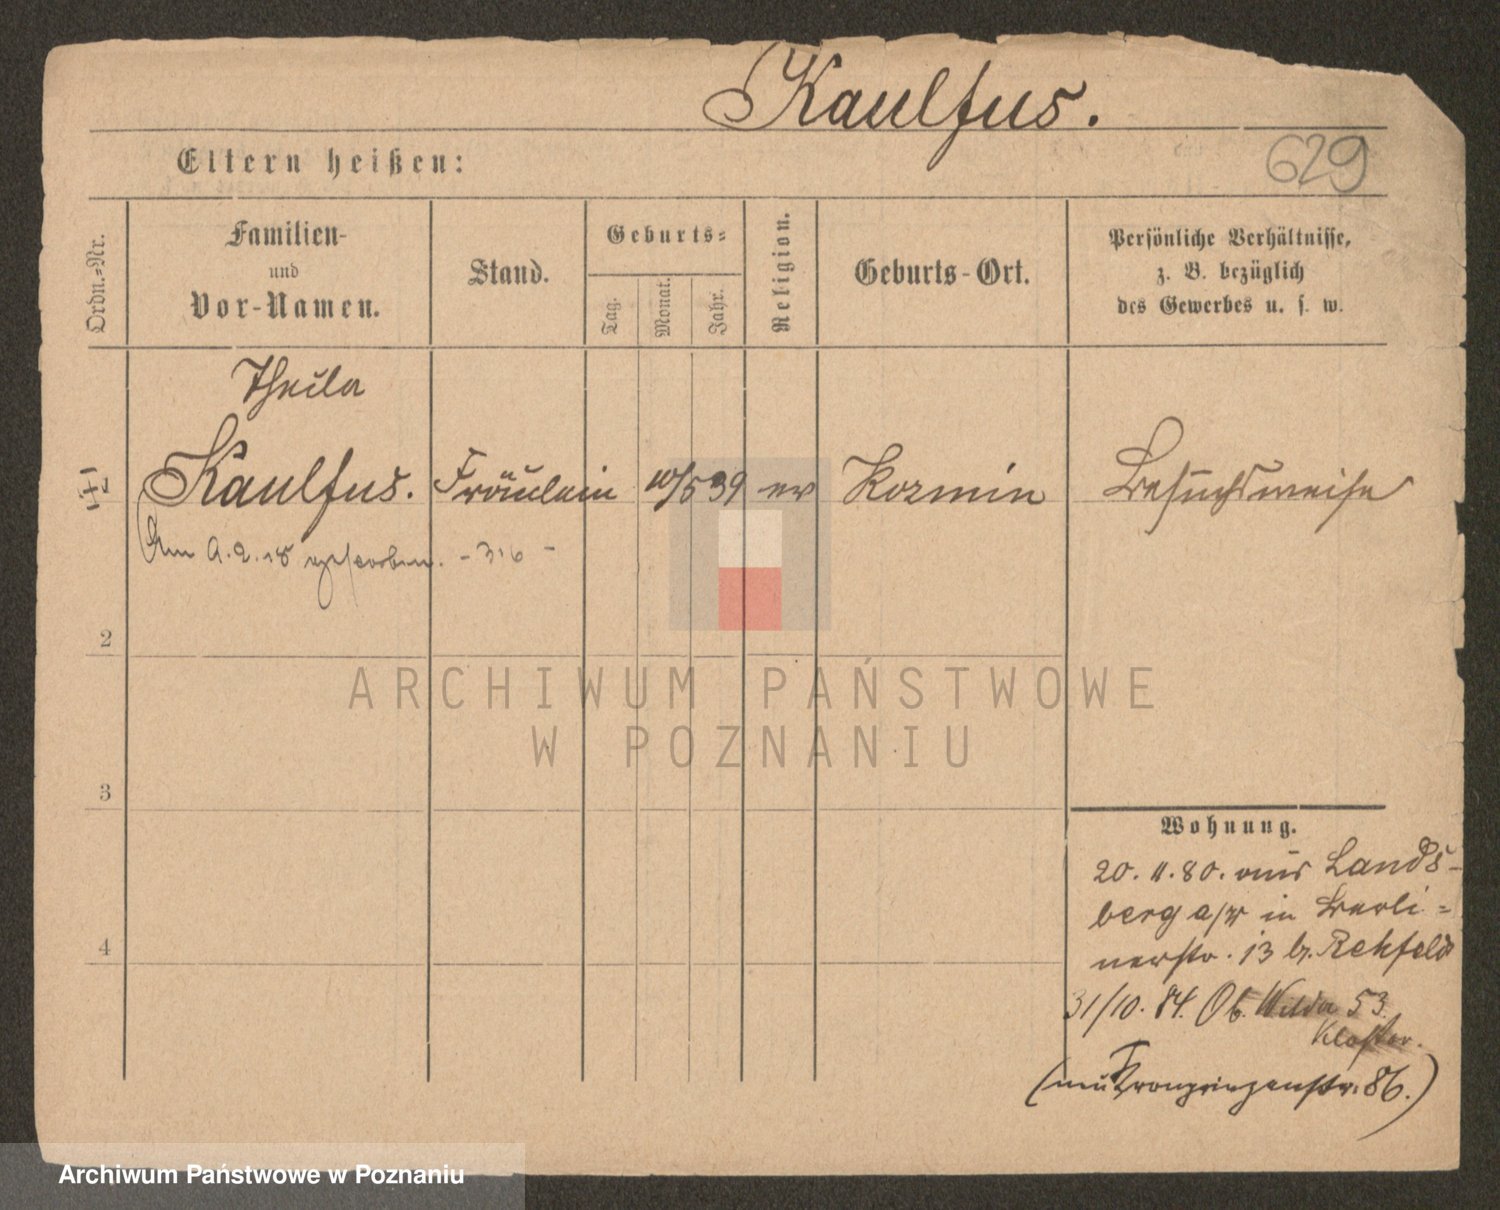 Kaulfus.
629
Eltern heißen:
Ordn.=Nr.
Familien-
und
Vor-Namen.
Stand.
Geburts=
Tag.
Monat.
Jahr.
Religion.
Geburts-Ort.
Persönliche Verhältnisse,
z. B. bezüglich
des Gewerbes u. s. w.
Thecla
1 Kaulfus. Fräulein 10/5 39 ev Kozmin Besuchsweise
Am 9.2.18 gestorben.
2
3
4
Wohnung.
20. 11. 80. aus Lands-
berg a/W in Berli=
nerstr. 13 b. Rehfeld
31/10. 84. Ob. Wilda 53.
Kloster.
(neu Kronprinzenstr. 86.)
ARCHIWUM PAŃSTWOWE
W POZNANIU
Archiwum Państwowe w Poznaniu